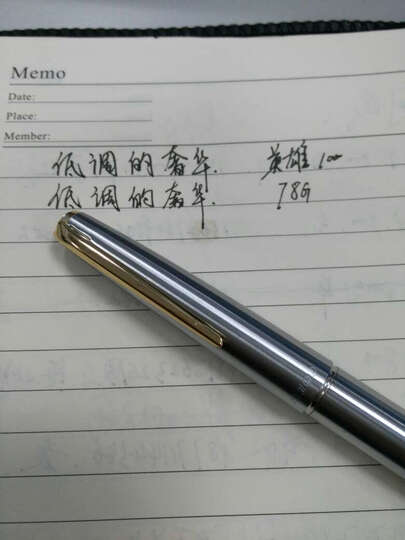 Memo
Date:
Place:
Member:
低调的奢华. 英雄100
低调的奢华. 78G